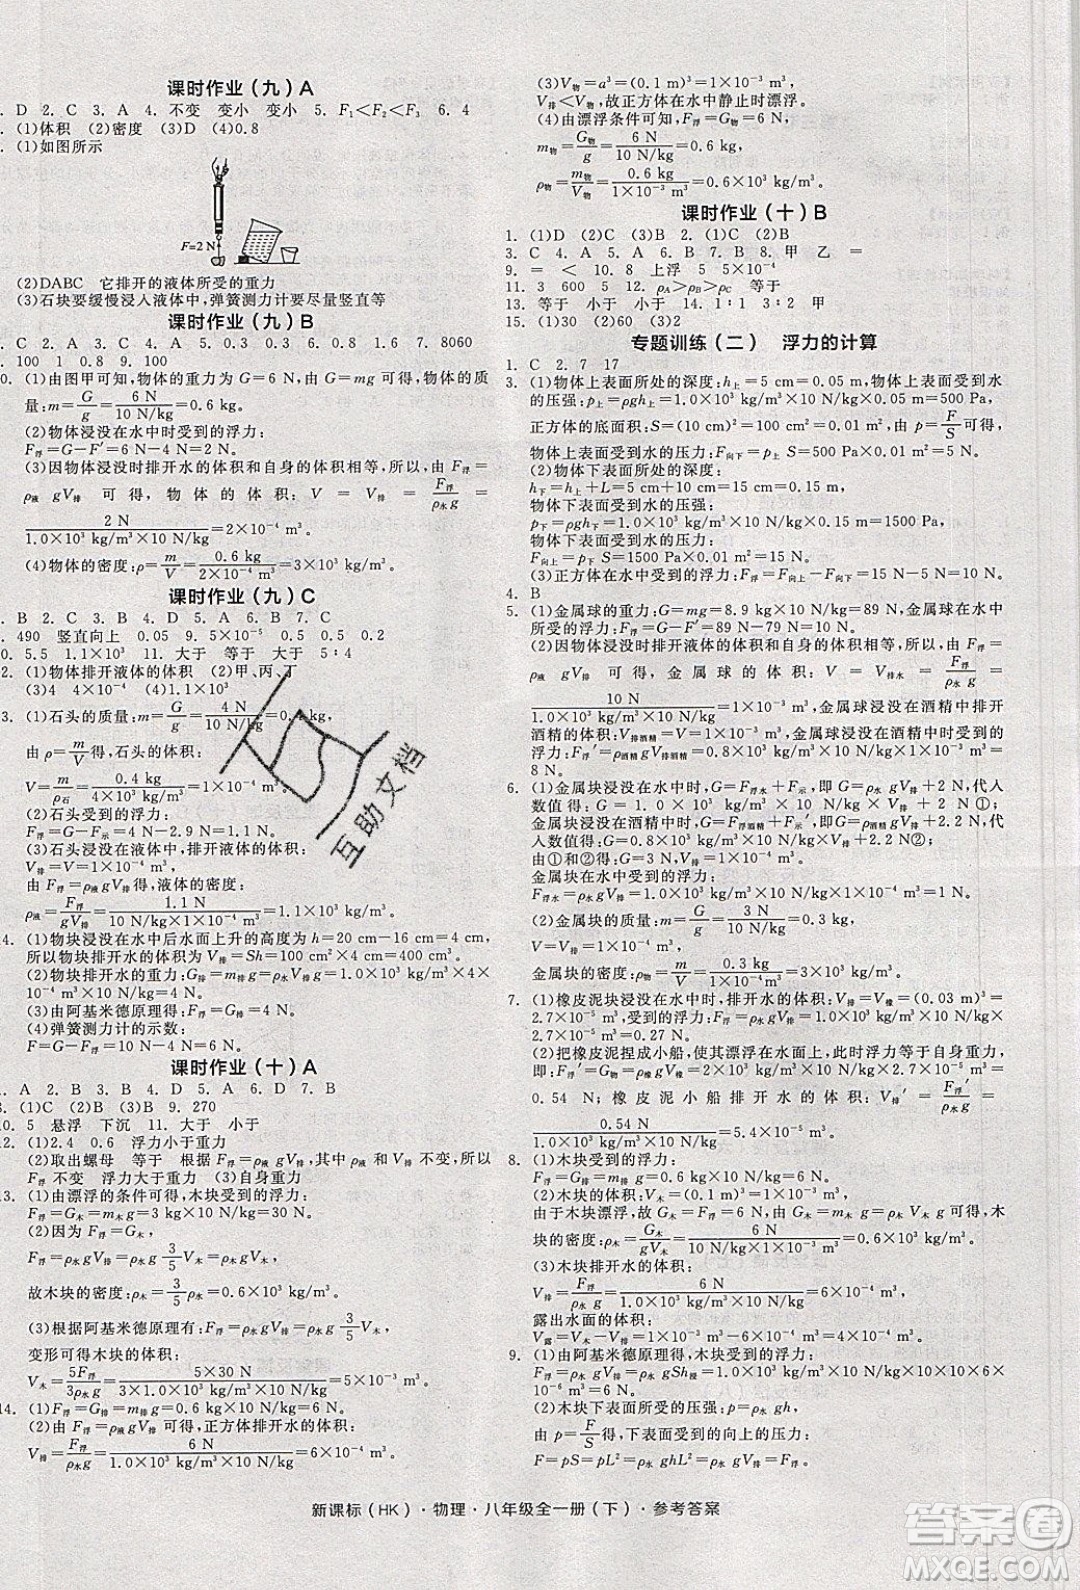 课时作业（九）A
. D  2. C  3. A  4. 不变  变小  变小  5. F₁＜F₂＜F₃  6. 4
. (1)体积  (2)密度  (3)D  (4)0.8
. (1)如图所示
F=2 N
(2)DABC  它排开的液体所受的重力
(3)石块要缓慢浸入液体中，弹簧测力计要尽量竖直等
课时作业（九）B
. C  2. A  3. C  4. A  5. 0.3  0.3  6. 1.6  7. 8060
. 100  1  0.8  9. 100
0. (1)由图甲可知，物体的重力为 G=6 N，由 G=mg 可得，物体的质
量：m=G/g=6 N/10 N/kg=0.6 kg。
(2)物体浸没在水中时受到的浮力：
F浮=G−F′=6 N−4 N=2 N。
(3)因物体浸没时排开水的体积和自身的体积相等，所以，由 F浮=
ρ液 gV排 可得，物体的体积：V=V排=F浮/ρ水g=
2 N/1.0×10³ kg/m³×10 N/kg=2×10⁻⁴ m³。
(4)物体的密度：ρ=m/V=0.6 kg/2×10⁻⁴ m³=3×10³ kg/m³。
课时作业（九）C
. B  2. C  3. B  4. D  5. A  6. B  7. C
. 490  竖直向上  0.05  9. 5×10⁻⁵  0.5  0.5  0.2
0. 5.5  1.1×10³  11. 大于  等于  大于  5∶4
2. (1)物体排开液体的体积  (2)甲、丙、丁
(3)4  4×10⁻⁴  (4)1.1×10³
3. (1)石头的质量：m=G/g=4 N/10 N/kg=0.4 kg，
由 ρ=m/V得，石头的体积：
V=m/ρ石=0.4 kg/4×10³ kg/m³=1×10⁻⁴ m³。
(2)石头受到的浮力：
F浮=G−F示=4 N−2.9 N=1.1 N。
(3)石头浸没在液体中，排开液体的体积：
V排=V=1×10⁻⁴ m³，
由 F浮=ρ液 gV排 得，液体的密度：
ρ液=F浮/gV排=1.1 N/10 N/kg×1×10⁻⁴ m³=1.1×10³ kg/m³。
4. (1)物块浸没在水中后水面上升的高度为 h=20 cm−16 cm=4 cm，
所以物块排开水的体积为 V排=Sh=100 cm²×4 cm=400 cm³。
(2)物块排开水的重力：G排=m排g=ρ水gV排=1.0×10³ kg/m³×4×
10⁻⁴ m³×10 N/kg=4 N。
(3)由阿基米德原理得：F浮=G排=4 N。
(4)弹簧测力计的示数：
F=G−F浮=10 N−4 N=6 N。
课时作业（十）A
. A  2. B  3. B  4. D  5. A  6. D  7. B
8. (1)C  (2)B  (3)B  9. 270
0. 5  悬浮  下沉  11. 大于  小于
12. (1)2.4  0.6  浮力小于重力
(2)取出螺母  等于  根据 F浮=ρ液 gV排，其中 ρ液 和 V排 不变，所以
F浮 不变  浮力大于重力  (3)自身重力
13. (1)由漂浮的条件可得，木块受到的浮力：
F浮=G木=m木g=3 kg×10 N/kg=30 N。
(2)因为 F浮=G木，
F浮=ρ水 gV排=ρ水 g 3/5 V木=ρ木 gV木，
故木块的密度：ρ木=3/5 ρ水=0.6×10³ kg/m³。
(3)根据阿基米德原理有：F浮=ρ水 gV排=ρ水 g 3/5 V木，
变形可得木块的体积：
V木=5F浮/3ρ水 g=5×30 N/3×1.0×10³ kg/m³×10 N/kg=5×10⁻³ m³。
14. (1)F浮=G排=m排g=0.6 kg×10 N/kg=6 N。
(2)由 F浮=ρ水 gV排 可得，正方体排开水的体积：
V排=F浮/ρ水g=6 N/1.0×10³ kg/m³×10 N/kg=6×10⁻⁴ m³。
(3)V物=a³=(0.1 m)³=1×10⁻³ m³，
V排＜V物，故正方体在水中静止时漂浮。
(4)由漂浮条件可知，G物=F浮=6 N，
m物=G物/g=6 N/10 N/kg=0.6 kg，
ρ物=m物/V物=0.6 kg/1×10⁻³ m³=0.6×10³ kg/m³。
课时作业（十）B
1. (1)D  (2)C  (3)B  2. (1)C  (2)B
3. C  4. A  5. A  6. B  7. B  8. 甲  乙  =
9. =  ＜  10. 8  上浮  5  5×10⁻⁴
11. 3  600  5  12. ρA＞ρB＞ρC  等于
13. 等于  小于  小于  14. 1∶1  3∶2  甲
15. (1)30  (2)60  (3)2
专题训练（二）  浮力的计算
1. C  2. 7  17
3. (1)物体上表面所处的深度：h上=5 cm=0.05 m，上表面受到水
的压强：p上=ρgh上=1.0×10³ kg/m³×10 N/kg×0.05 m=500 Pa，
正方体的底面积：S=(10 cm)²=0.01 m²，由 p=F/S可得，
物体上表面受到水的压力：F向下=p上S=500 Pa×0.01 m²=5 N。
(2)物体下表面所处的深度：
h下=h上+L=5 cm+10 cm=15 cm=0.15 m，
物体下表面受到水的压强：
p下=ρgh下=1.0×10³ kg/m³×10 N/kg×0.15 m=1500 Pa，
物体下表面受到水的压力：
F向上=p下S=1500 Pa×0.01 m²=15 N。
(3)正方体在水中受到的浮力：F浮=F向上−F向下=15 N−5 N=10 N。
4. B
5. (1)金属球的重力：G=mg=8.9 kg×10 N/kg=89 N，金属球在水中
所受的浮力：F浮=G−F′=89 N−79 N=10 N。
(2)因物体浸没时排开水的体积和自身的体积相等，所以，由 F浮=
ρ水 gV排 可得，金属球的体积：V=V排水=F浮/ρ水g=
10 N/1.0×10³ kg/m³×10 N/kg=1×10⁻³ m³。(3)金属球浸没在酒精中排
开酒精的体积：V排酒精=V=1×10⁻³ m³，金属球浸没在酒精中受到的
浮力：F浮′=ρ酒精 gV排酒精=0.8×10³ kg/m³×10 N/kg×1×10⁻³ m³=
8 N。
6. (1)金属块浸没在水中时，由 G=F浮水+F示，即 G=ρ水gV排+2 N，代人
数值得：G=1.0×10³ kg/m³×10 N/kg×V排+2 N①；
金属块浸没在酒精中时，由 G=F浮酒精+F示′，即 G=ρ酒精gV排+2.2 N，
代人数值得：G=0.8×10³ kg/m³×10 N/kg×V排+2.2 N②；
由①和②得：G=3 N，V排=1×10⁻⁴ m³，
金属块在水中受到的浮力：
F浮水=ρ水gV排=1.0×10³ kg/m³×10 N/kg×1×10⁻⁴ m³=1 N。
(2)金属块的质量：m=G/g=3 N/10 N/kg=0.3 kg，
V=V排=1×10⁻⁴ m³，
金属块的密度：ρ物=m/V=0.3 kg/1×10⁻⁴ m³=3×10³ kg/m³。
7. (1)橡皮泥块浸没在水中时，排开水的体积：V排=V橡=(0.03 m)³=
2.7×10⁻⁵ m³，受到的浮力：F浮=ρ水gV排=1.0×10³ kg/m³×
10 N/kg×2.7×10⁻⁵ m³=0.27 N。
(2)把橡皮泥捏成小船，使其漂浮在水面时，所受浮力等于自身重力，
即：F浮′=G物=m橡g=ρ橡gV橡=2×10³ kg/m³×10 N/kg×2.7×10⁻⁵ m³=
0.54 N；橡皮泥小船排开水的体积：V排′=F浮′/ρ水g=
0.54 N/1.0×10³ kg/m³×10 N/kg=5.4×10⁻⁵ m³。
8. (1)木块受到的浮力：
F浮=G排=m排g=0.6 kg×10 N/kg=6 N。
(2)木块的体积：V木=(0.1 m)³=1×10⁻³ m³，
由于木块漂浮，故 G木=F浮=6 N。由 G木=ρ木gV木 得，
木块的密度：ρ木=G木/gV木=6 N/10 N/kg×1×10⁻³ m³=0.6×10³ kg/m³。
(3)木块排开水的体积：
V排=F浮/ρ水g=6 N/1.0×10³ kg/m³×10 N/kg=6×10⁻⁴ m³，
露出水面的体积：
V露=V木−V排=1×10⁻³ m³−6×10⁻⁴ m³=4×10⁻⁴ m³。
9. (1)由阿基米德原理可得，木块受到的浮力：
F浮=ρ水 gV排=ρ水 gSh浸=1.0×10³ kg/m³×10 N/kg×100×
10⁻⁶ m³=6 N。
(2)木块下表面所受的压强：p=ρ水 gh，
由 p=F/S得，下表面受到的向上的压力：
F=pS=ρ水 gL²=1.0×10³ kg/m³×10 N/kg
新课标（HK）·物理·八年级全一册（下）·参考答案
互助文档
答案圈
MXQE.COM